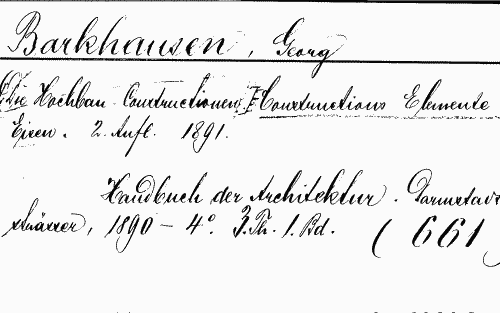 Barkhausen, Georg
Die Hochbau-Constructionen, I Constructions Elemente
Eisen. 2. Aufl. 1891.
Handbuch der Architektur.
1890 - 4°. 3. Th. 1. Bd. (661)